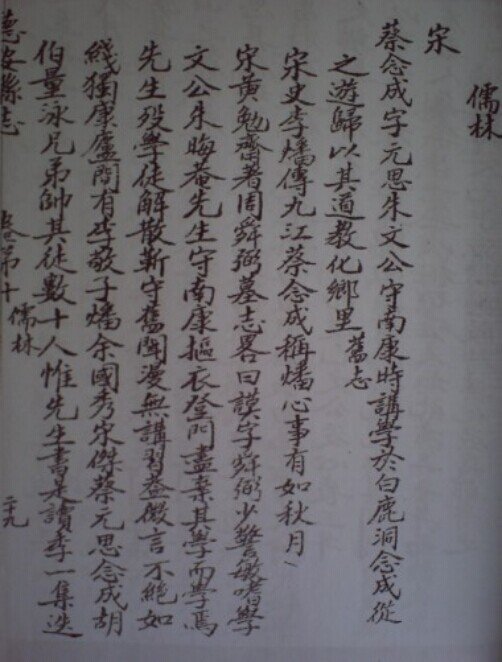 儒林
宋
蔡念成字元思朱文公守南康時講學於白鹿洞念成從
之遊歸以其道教化鄉里 舊志
宋史李燔傳九江蔡念成稱燔心事有如秋月
宋黃勉齋著周舜弼墓志畧曰謨字舜弼少警敏嗜學
文公朱晦菴先生守南康摳衣登門盡棄其學而學焉
先生殁學徒解散靳守舊聞漫無講習益微言不絕如
綫獨康廬間有李敬子燔余國秀宋傑蔡元思念成胡
伯量泳兄弟帥其徒數十人惟先生書是讀季一集迭
德安縣志 卷第十 儒林 二十九